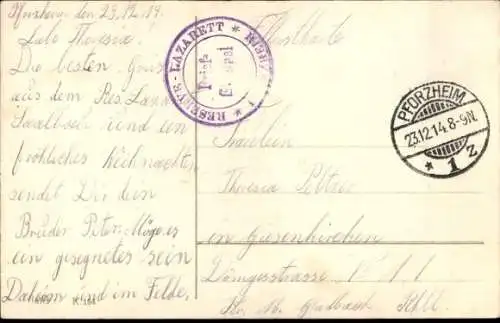 Pforzheim den 23.12.14.
Liebe Theresia!
Die besten Grüsse
aus dem Res. Laza.
Saalbau und ein
fröhliches Weihnachten
sendet Dir dein
Bruder Peter. Möge es
ein gesegnetes sein
Daheim und im Felde.
Feldpostkarte
* RESERVE-LAZARETT *
Brief-
Stempel
PFORZHEIM
23.12.14.8-9N.
* 1 Z
Fräulein
Theresia
in Giesenkirchen
11
Kr. M. Gladbach